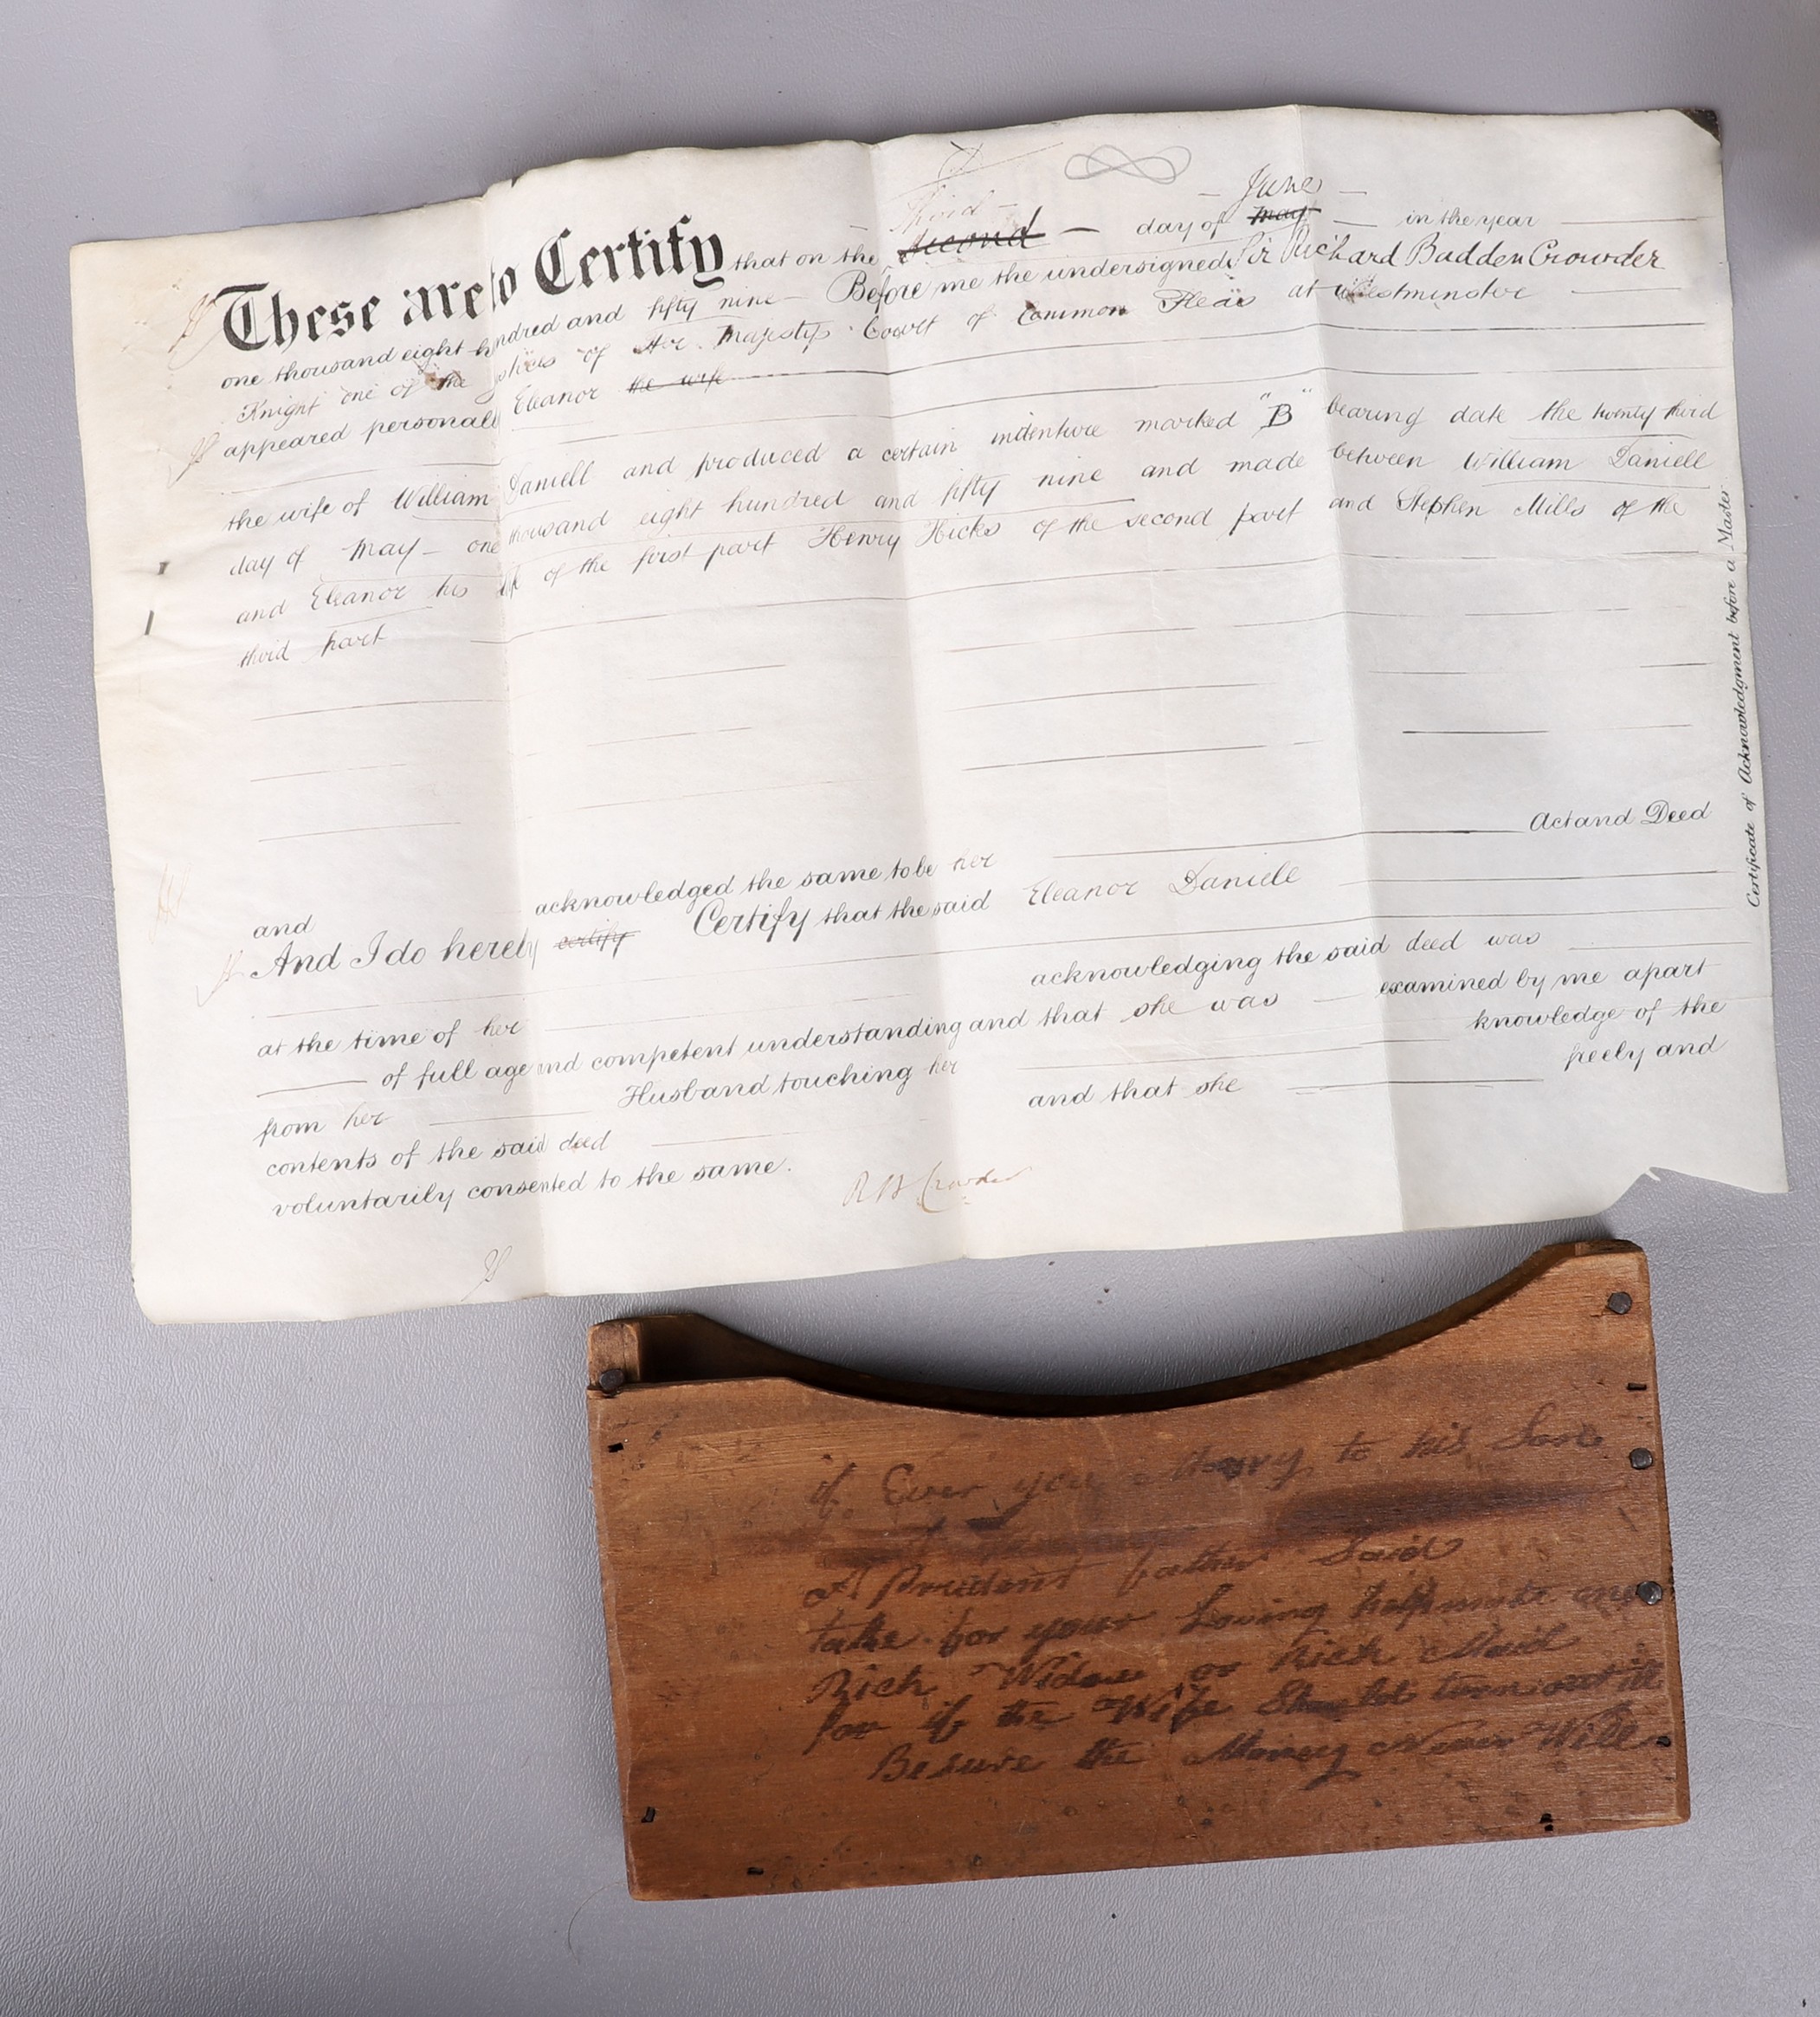 third — — June —
These are to Certify that on the second — day of May — in the year
one thousand eight hundred and fifty nine — Before me the undersigned Sir Richard Budden Crowder
Knight one of the Justices of Her Majestys Court of Common Pleas at Westminster
appeared personally Eleanor the wife
the wife of William Daniell and produced a certain indenture marked "B" bearing date the twenty third
day of May — one thousand eight hundred and fifty nine and made between William Daniell
and Eleanor his wife of the first part Henry Hicks of the second part and Stephen Mills of the
third part
and acknowledged the same to be her Act and Deed
And I do hereby certify Certify that the said Eleanor Daniell
at the time of her acknowledging the said deed was
of full age and competent understanding and that she was examined by me apart
from her Husband touching her knowledge of the
contents of the said deed and that she freely and
voluntarily consented to the same.
R B Crowder
Certificate of Acknowledgment before a Master
if Ever you Marry to his Son
A Prudent father Said
take for your Loving helpmate
Rich Widow or Rich Maid
for if the Wife Should turn out ill
Besure the Money Never Will